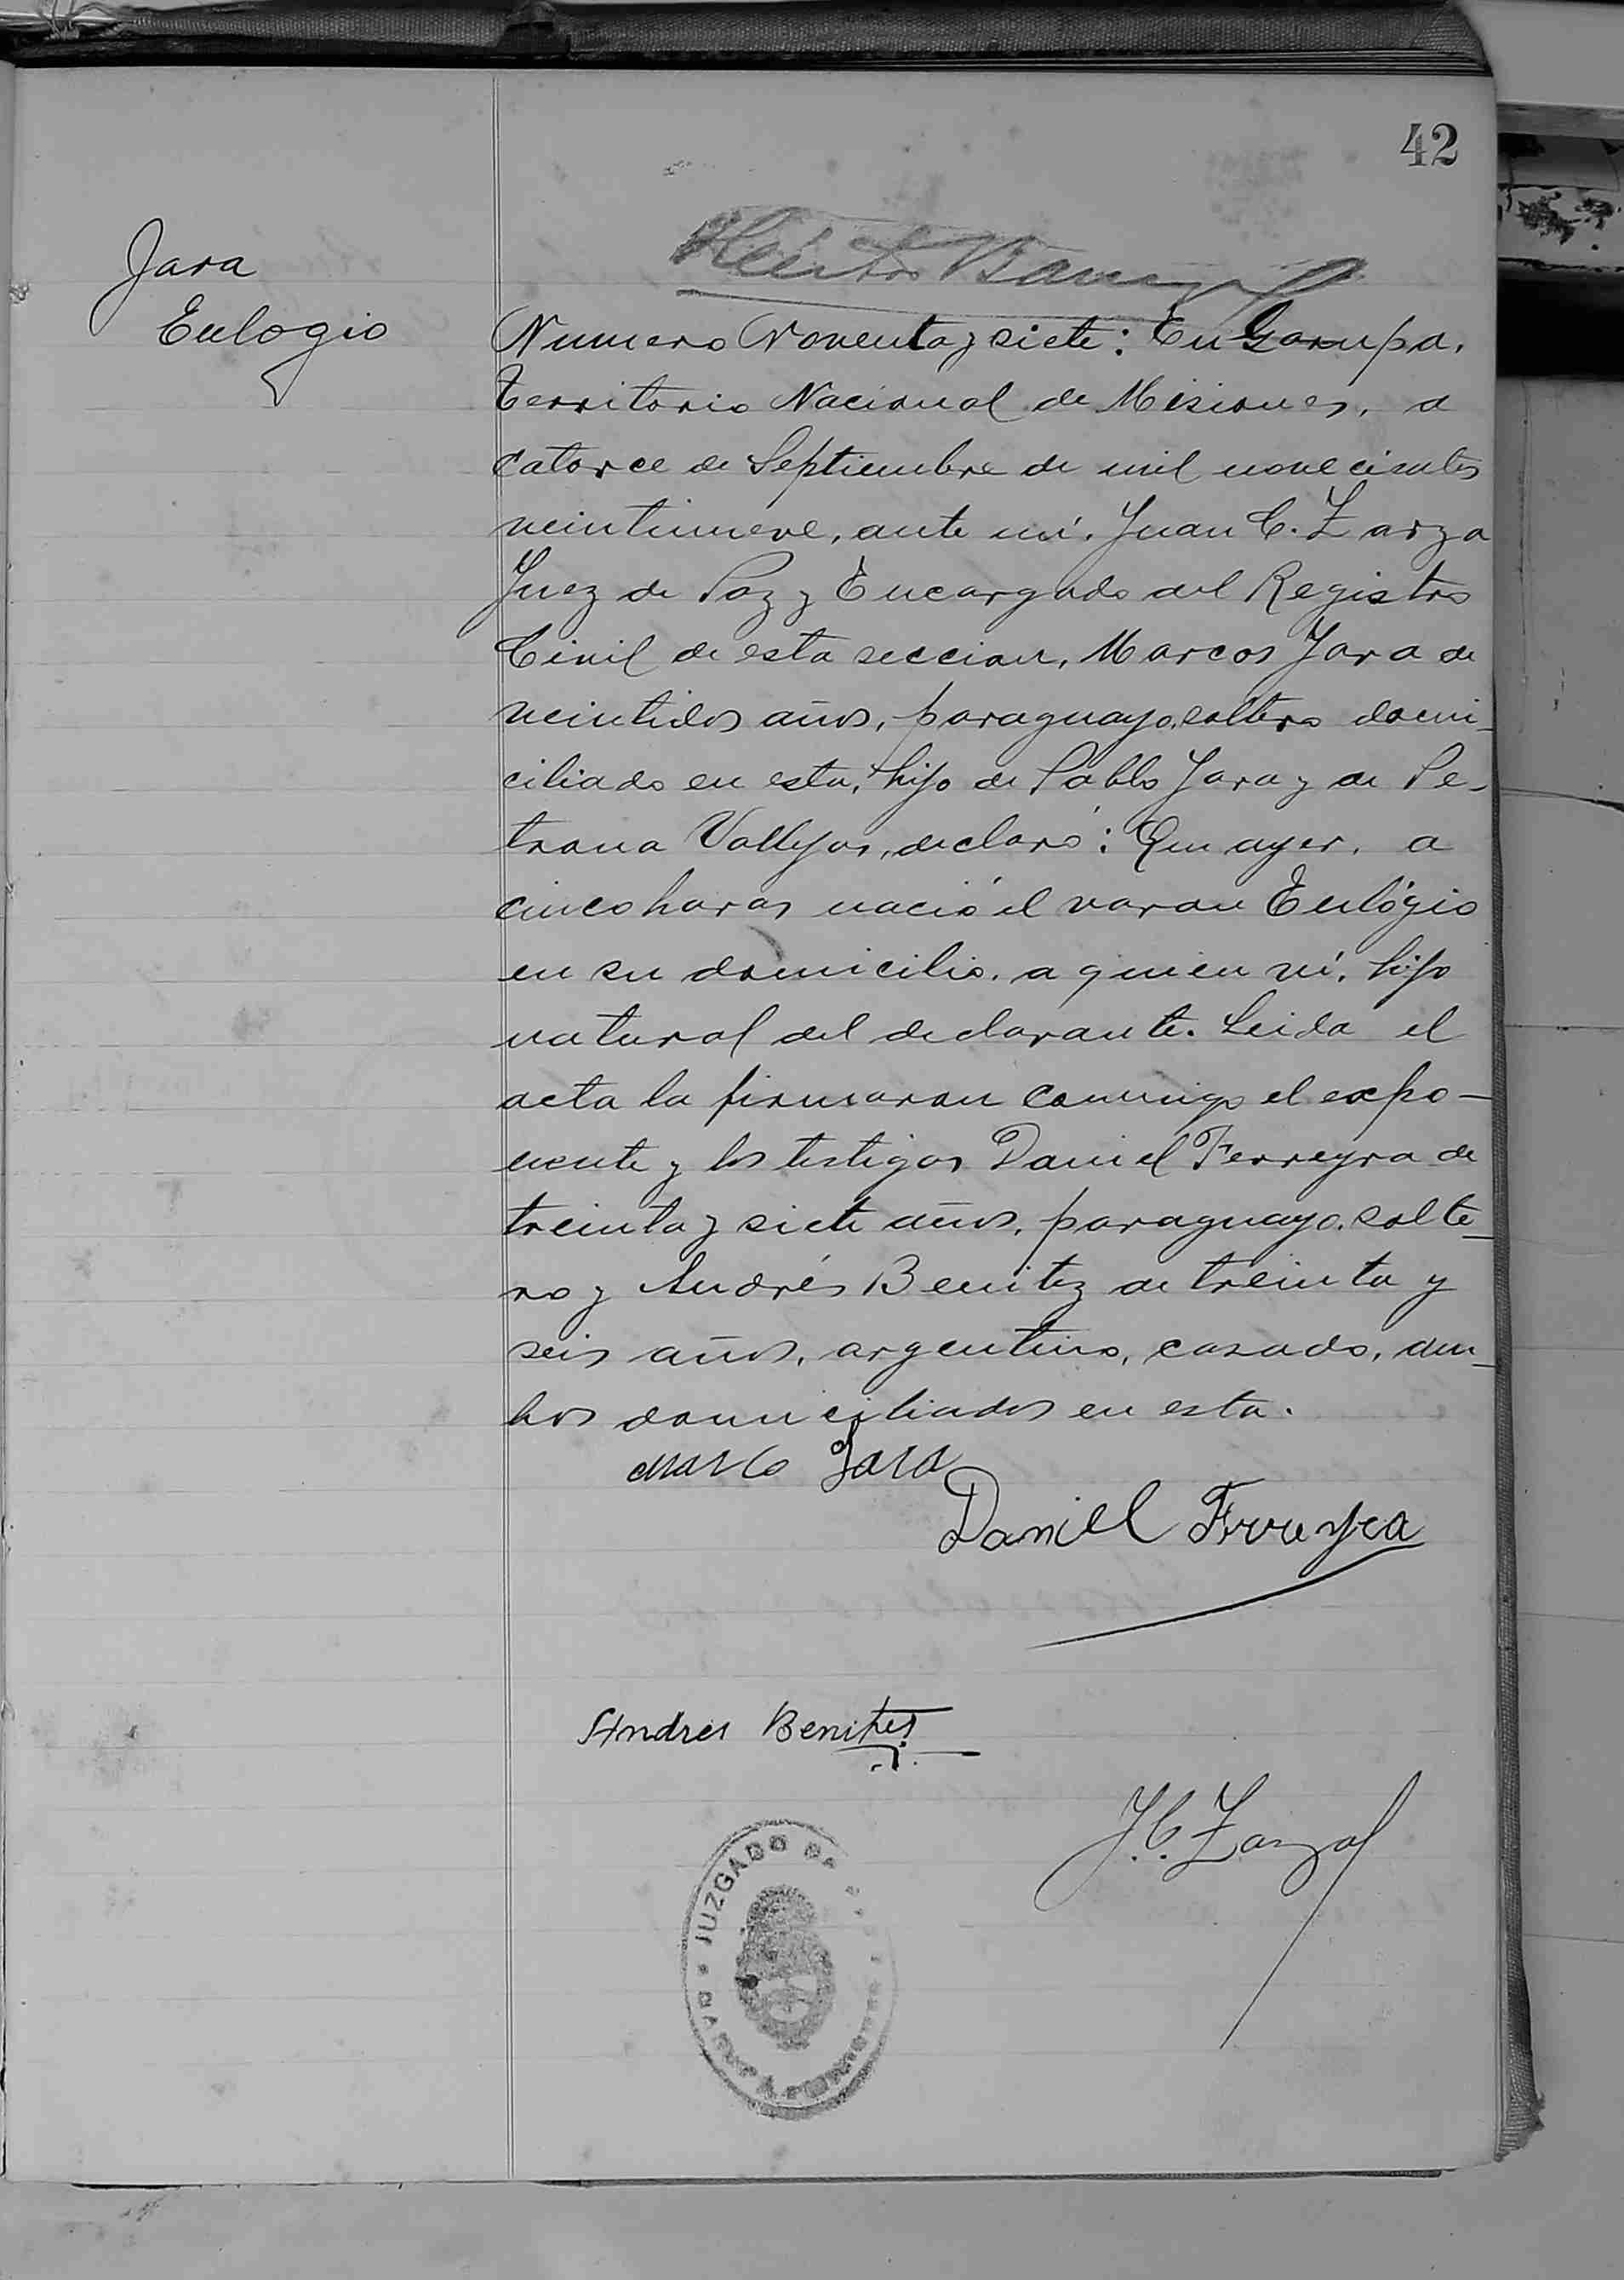 42
Jara
Eulogio
Numero Noventa y siete: En Garupa,
Territorio Nacional de Misiones, a
catorce de Septiembre de mil novecientos
veintinueve, ante mí, Juan C. Zarza
Juez de Paz y Encargado del Registro
Civil de esta seccion, Marcos Jara de
veintidos años, paraguayo, soltero domi-
ciliado en esta, hijo de Pablo Jara y de Pe-
trona Vallejos, declaró: Que ayer, a
cinco horas nació el varon Eulógio
en su domicilio, a quien ví, hijo
natural del declarante. Leida el
acta la firmaron conmigo el expo-
nente y los testigos Daniel Ferreyra de
treinta y siete años, paraguayo, solte-
ro y Andrés Benitez de treinta y
seis años, argentino, casado, am-
bos domiciliados en esta.
Marco Jara
Daniel Ferreyra
Andres Benites
J. C. Zarza
JUZGADO DE
GARUPÁ